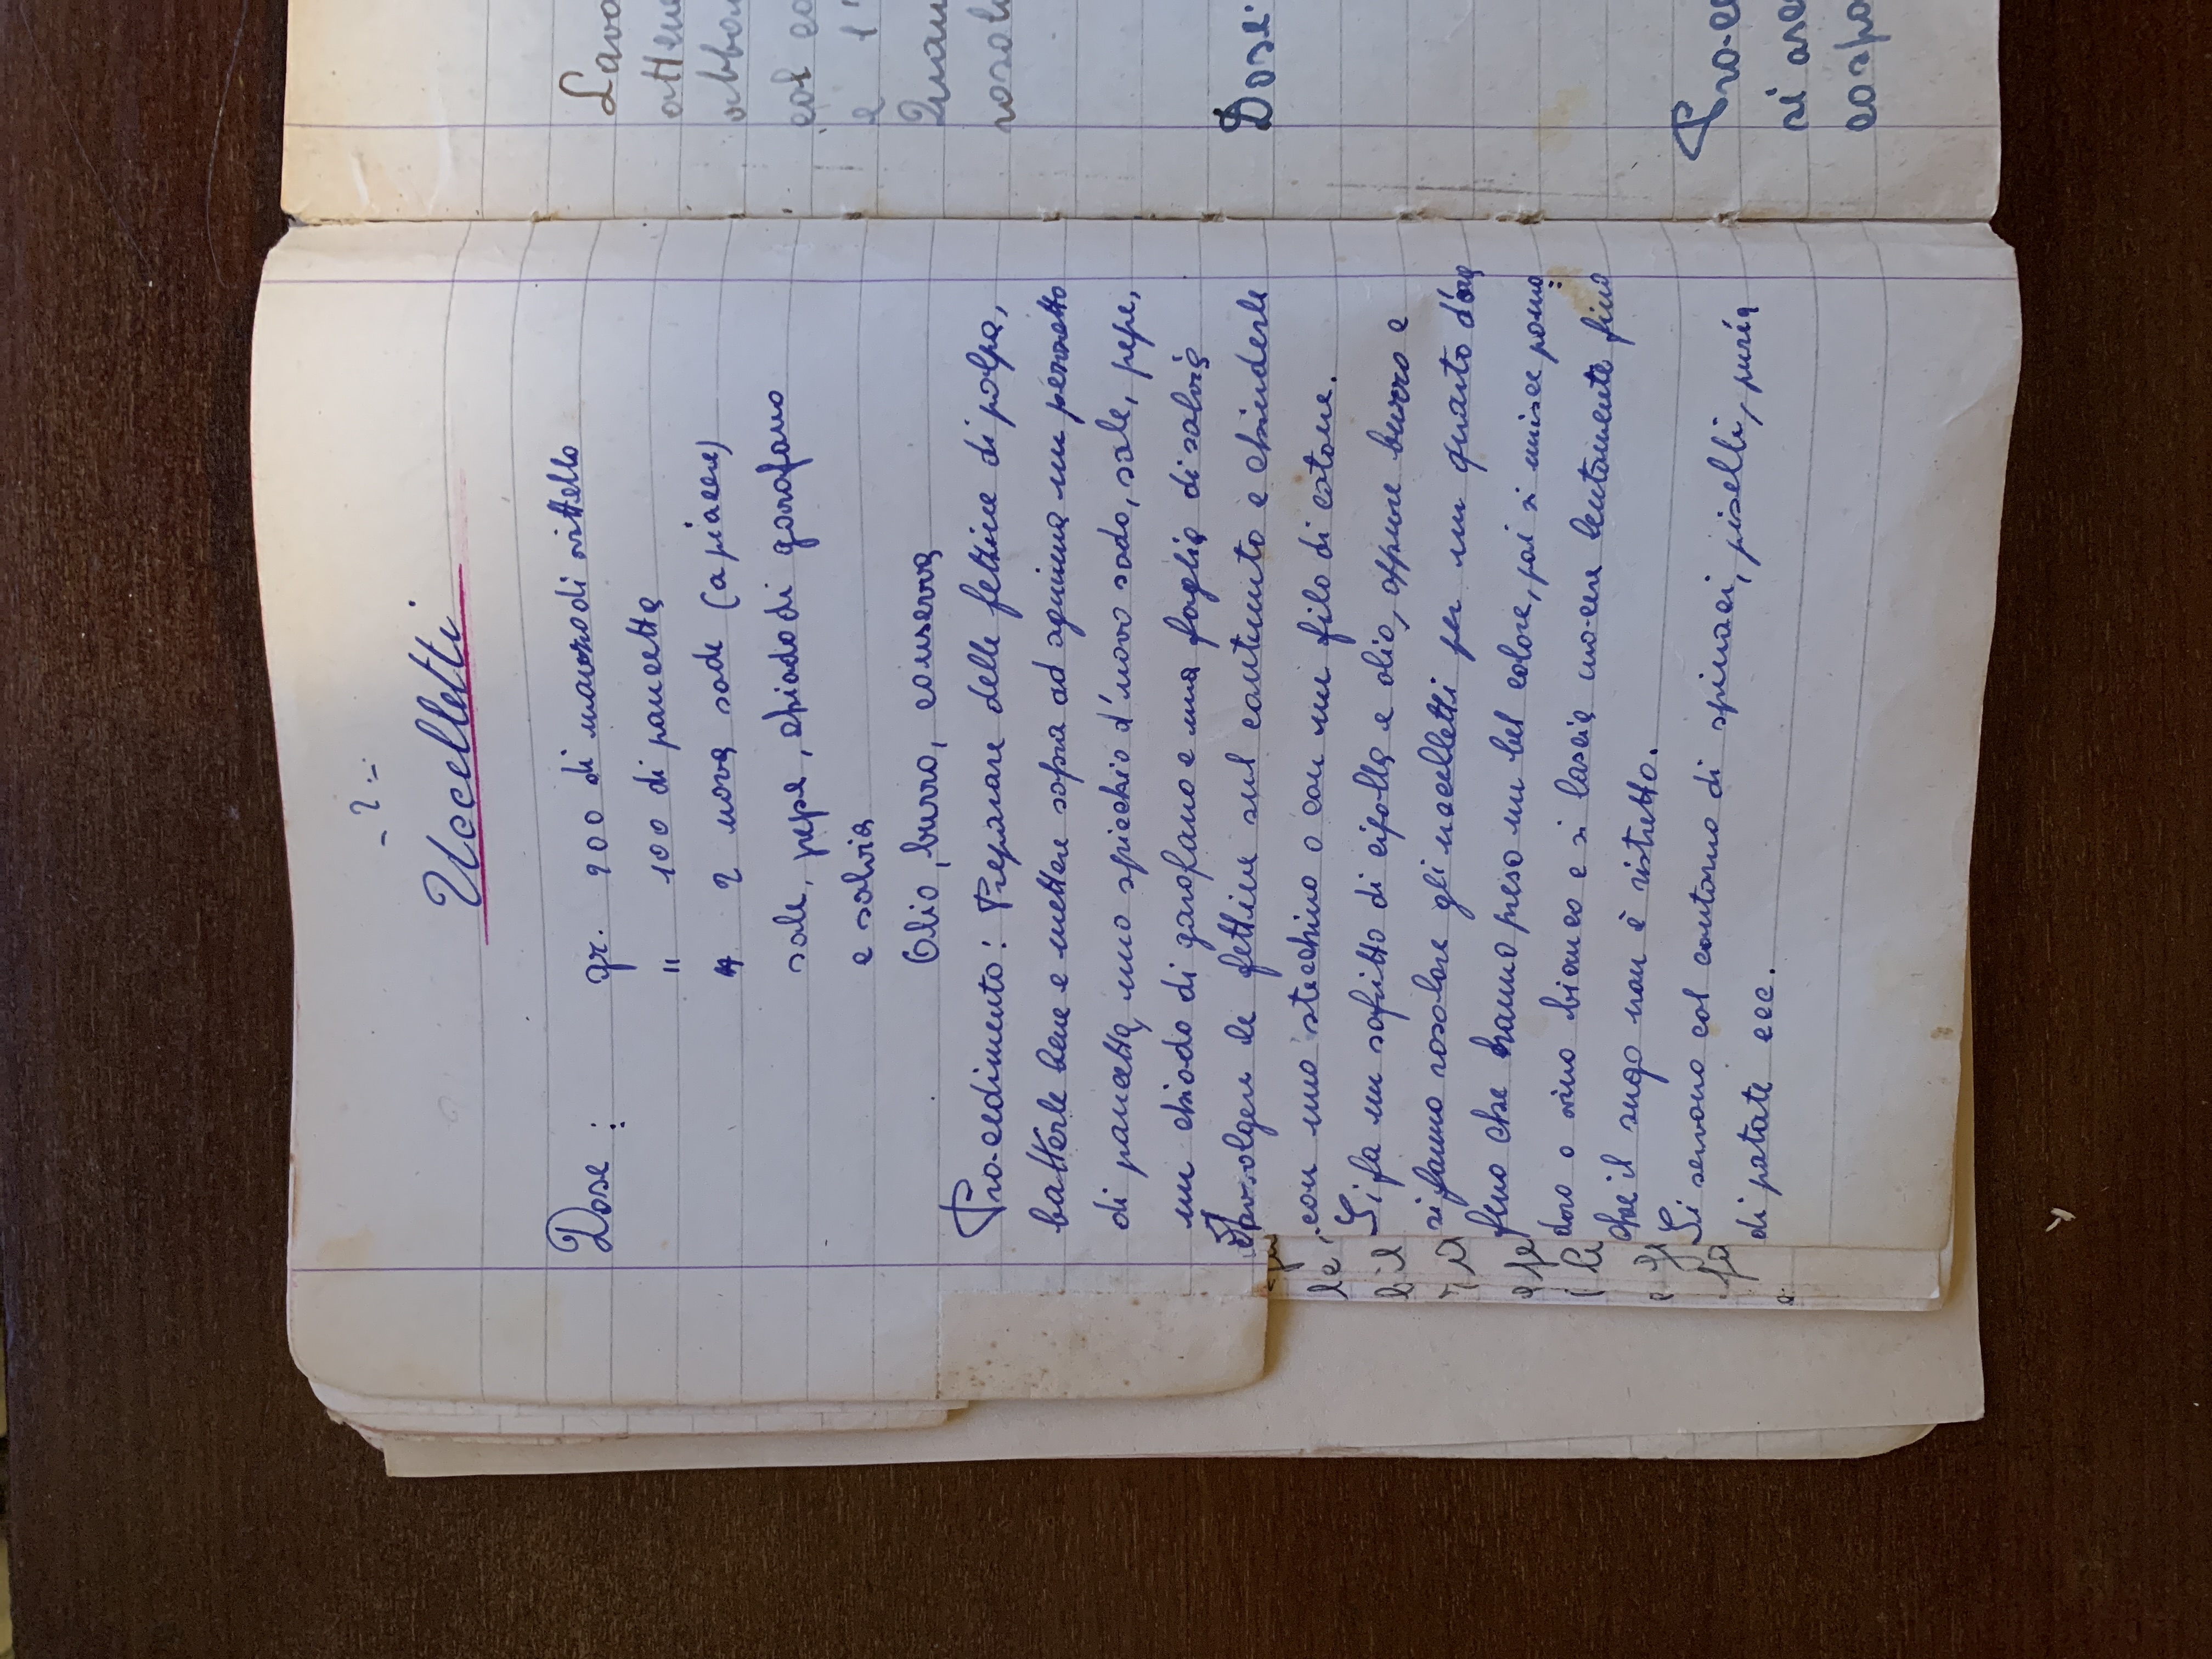 - 2.-
Uccelletti
Dose : gr. 200 di manzo di vittello
" 100 di pancetta
2 uova sode (a piacere)
sale, pepe, chiodo di garofano
e salvia
Olio, burro, conserva
Pro-cedimento: Preparare delle fettine di polpa,
batterle bene e mettere sopra ad ognuna un pezzetto
di pancetta, uno spicchio d'uovo sodo, sale, pepe,
un chiodo di garofano e una foglia di salvia
Avvolgere le fettine sul contenuto e chiuderle
con uno stecchino o con un filo di cotone.
Si fa un sofritto di cipolla e olio, oppure burro e
si fanno rosolare gli uccelletti per un quarto d'ora
fino che hanno preso un bel colore, poi si unisce pomo
doro o vino bianco e si lascia cuo-cere lentamente fino
che il sugo non è ristretto.
Si servono col contorno di spinaci, piselli, purèa
di patate ecc.
le
bil
Lava
attene
abbo
col co
e l'
Quan
rosol
Dose
Pro-ce
si asc
cospa